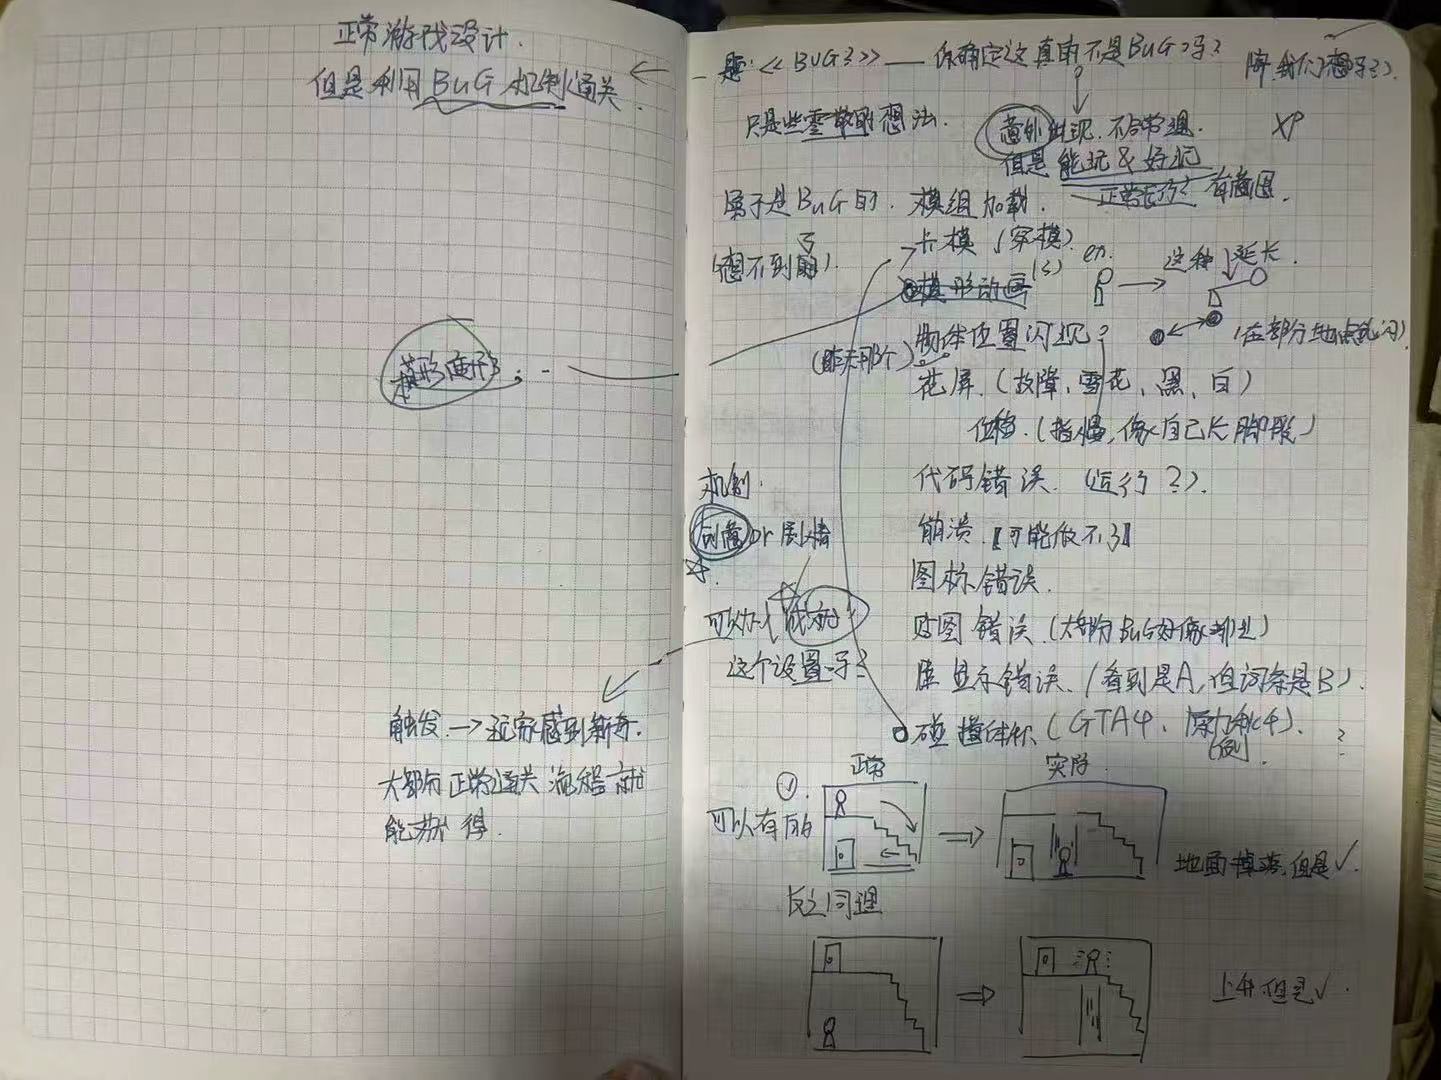 正常游戏设计.
但是利用BUG机制通关
模形变形?
触发.→玩家感到新奇.
大部分正常通关流程就
能获得.
题:<<BUG?>>——你确定这真的不是BUG吗?
只是些零散的想法.
意外出现.不合常理.
但是能玩&好玩
XP
正常运行? 有截图.
属于是BUG的.
(想不到了)
模组加载.
卡模(穿模)
模形动画(?)
en.
这种延长.
物体位置闪现?
(昨天那个)
(在部分地点乱闪)
花屏.(故障,雪花,黑,白)
位移.(指慢,像自己长脚形)
代码错误.(运行?).
崩溃.【可能做不了】
图标错误.
贴图错误.(大部分BUG好像都是)
显示错误.(看到是A,但词条是B).
碰撞体积(GTA4、
(例).
机制.
创意or剧情
可以加入成就
这个设置吗?
可以有的
正常
实际.
地面掉落,但是✓.
反之同理
上升但是✓.